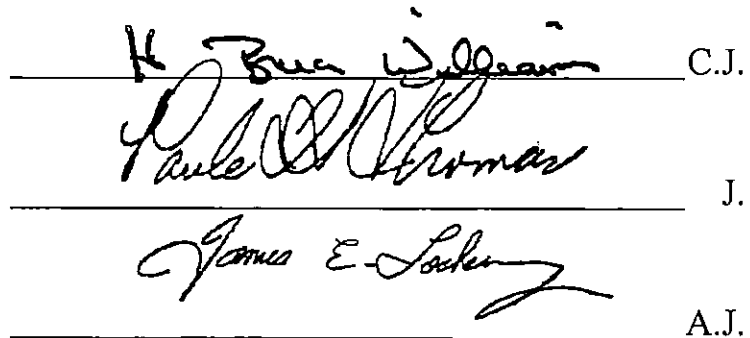 H Bruce Williams C.J.
Paula H. Thomas J.
James E. Lockemy A.J.